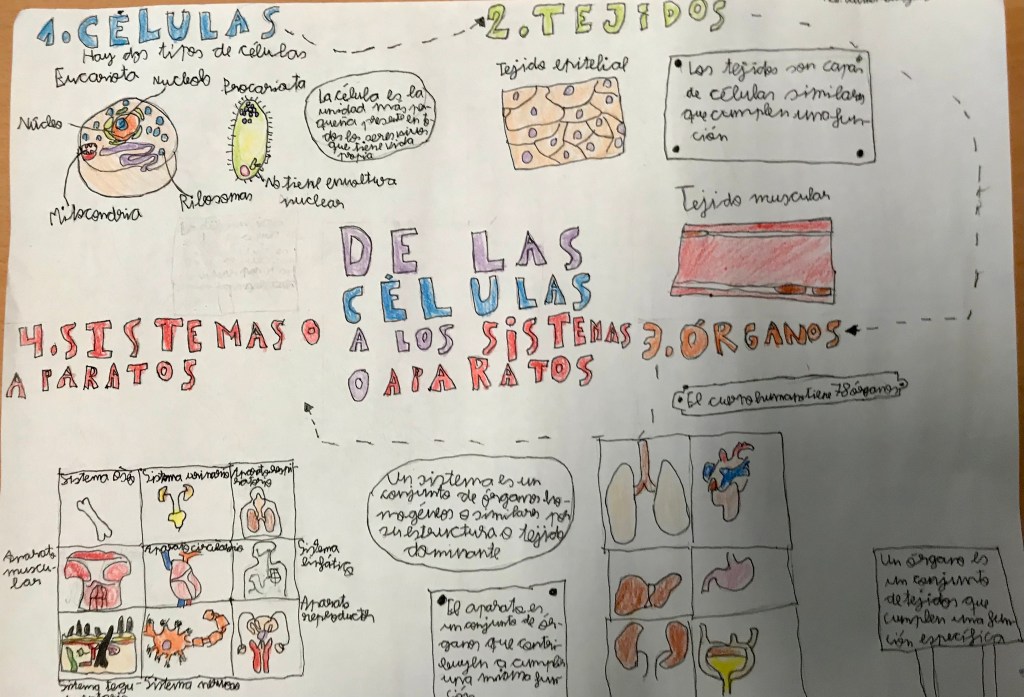 1. CÉLULAS
Hay dos tipos de células
Eucariota
Nucleolo
Procariota
Núcleo
Mitocondria
Ribosomas
No tiene envoltura
nuclear
La célula es la
unidad más pe-
queña presente en to-
dos los seres vivos
que tiene vida
propia
2. TEJIDOS
Tejido epitelial
Los tejidos son capas
de células similares
que cumplen una fun-
ción
Tejido muscular
DE LAS
CÉLULAS
A LOS SISTEMAS
O APARATOS
3. ÓRGANOS
El cuerpo humano tiene 78 órganos
Un órgano es
un conjunto
de tejidos que
cumplen una fun-
ción específica
4. SISTEMAS O
APARATOS
Sistema óseo
Sistema urinario
Aparato respi-
ratorio
Aparato
muscu-
lar
Aparato circulatorio
Sistema
linfático
Aparato
reproductor
Sistema tegu-
Sistema nervioso
Un sistema es un
conjunto de órganos ho-
mogéneos o similares por
su estructura o tejido
dominante
El aparato es
un conjunto de ór-
ganos que contri-
buyen a cumplir
una misma fun-
ción